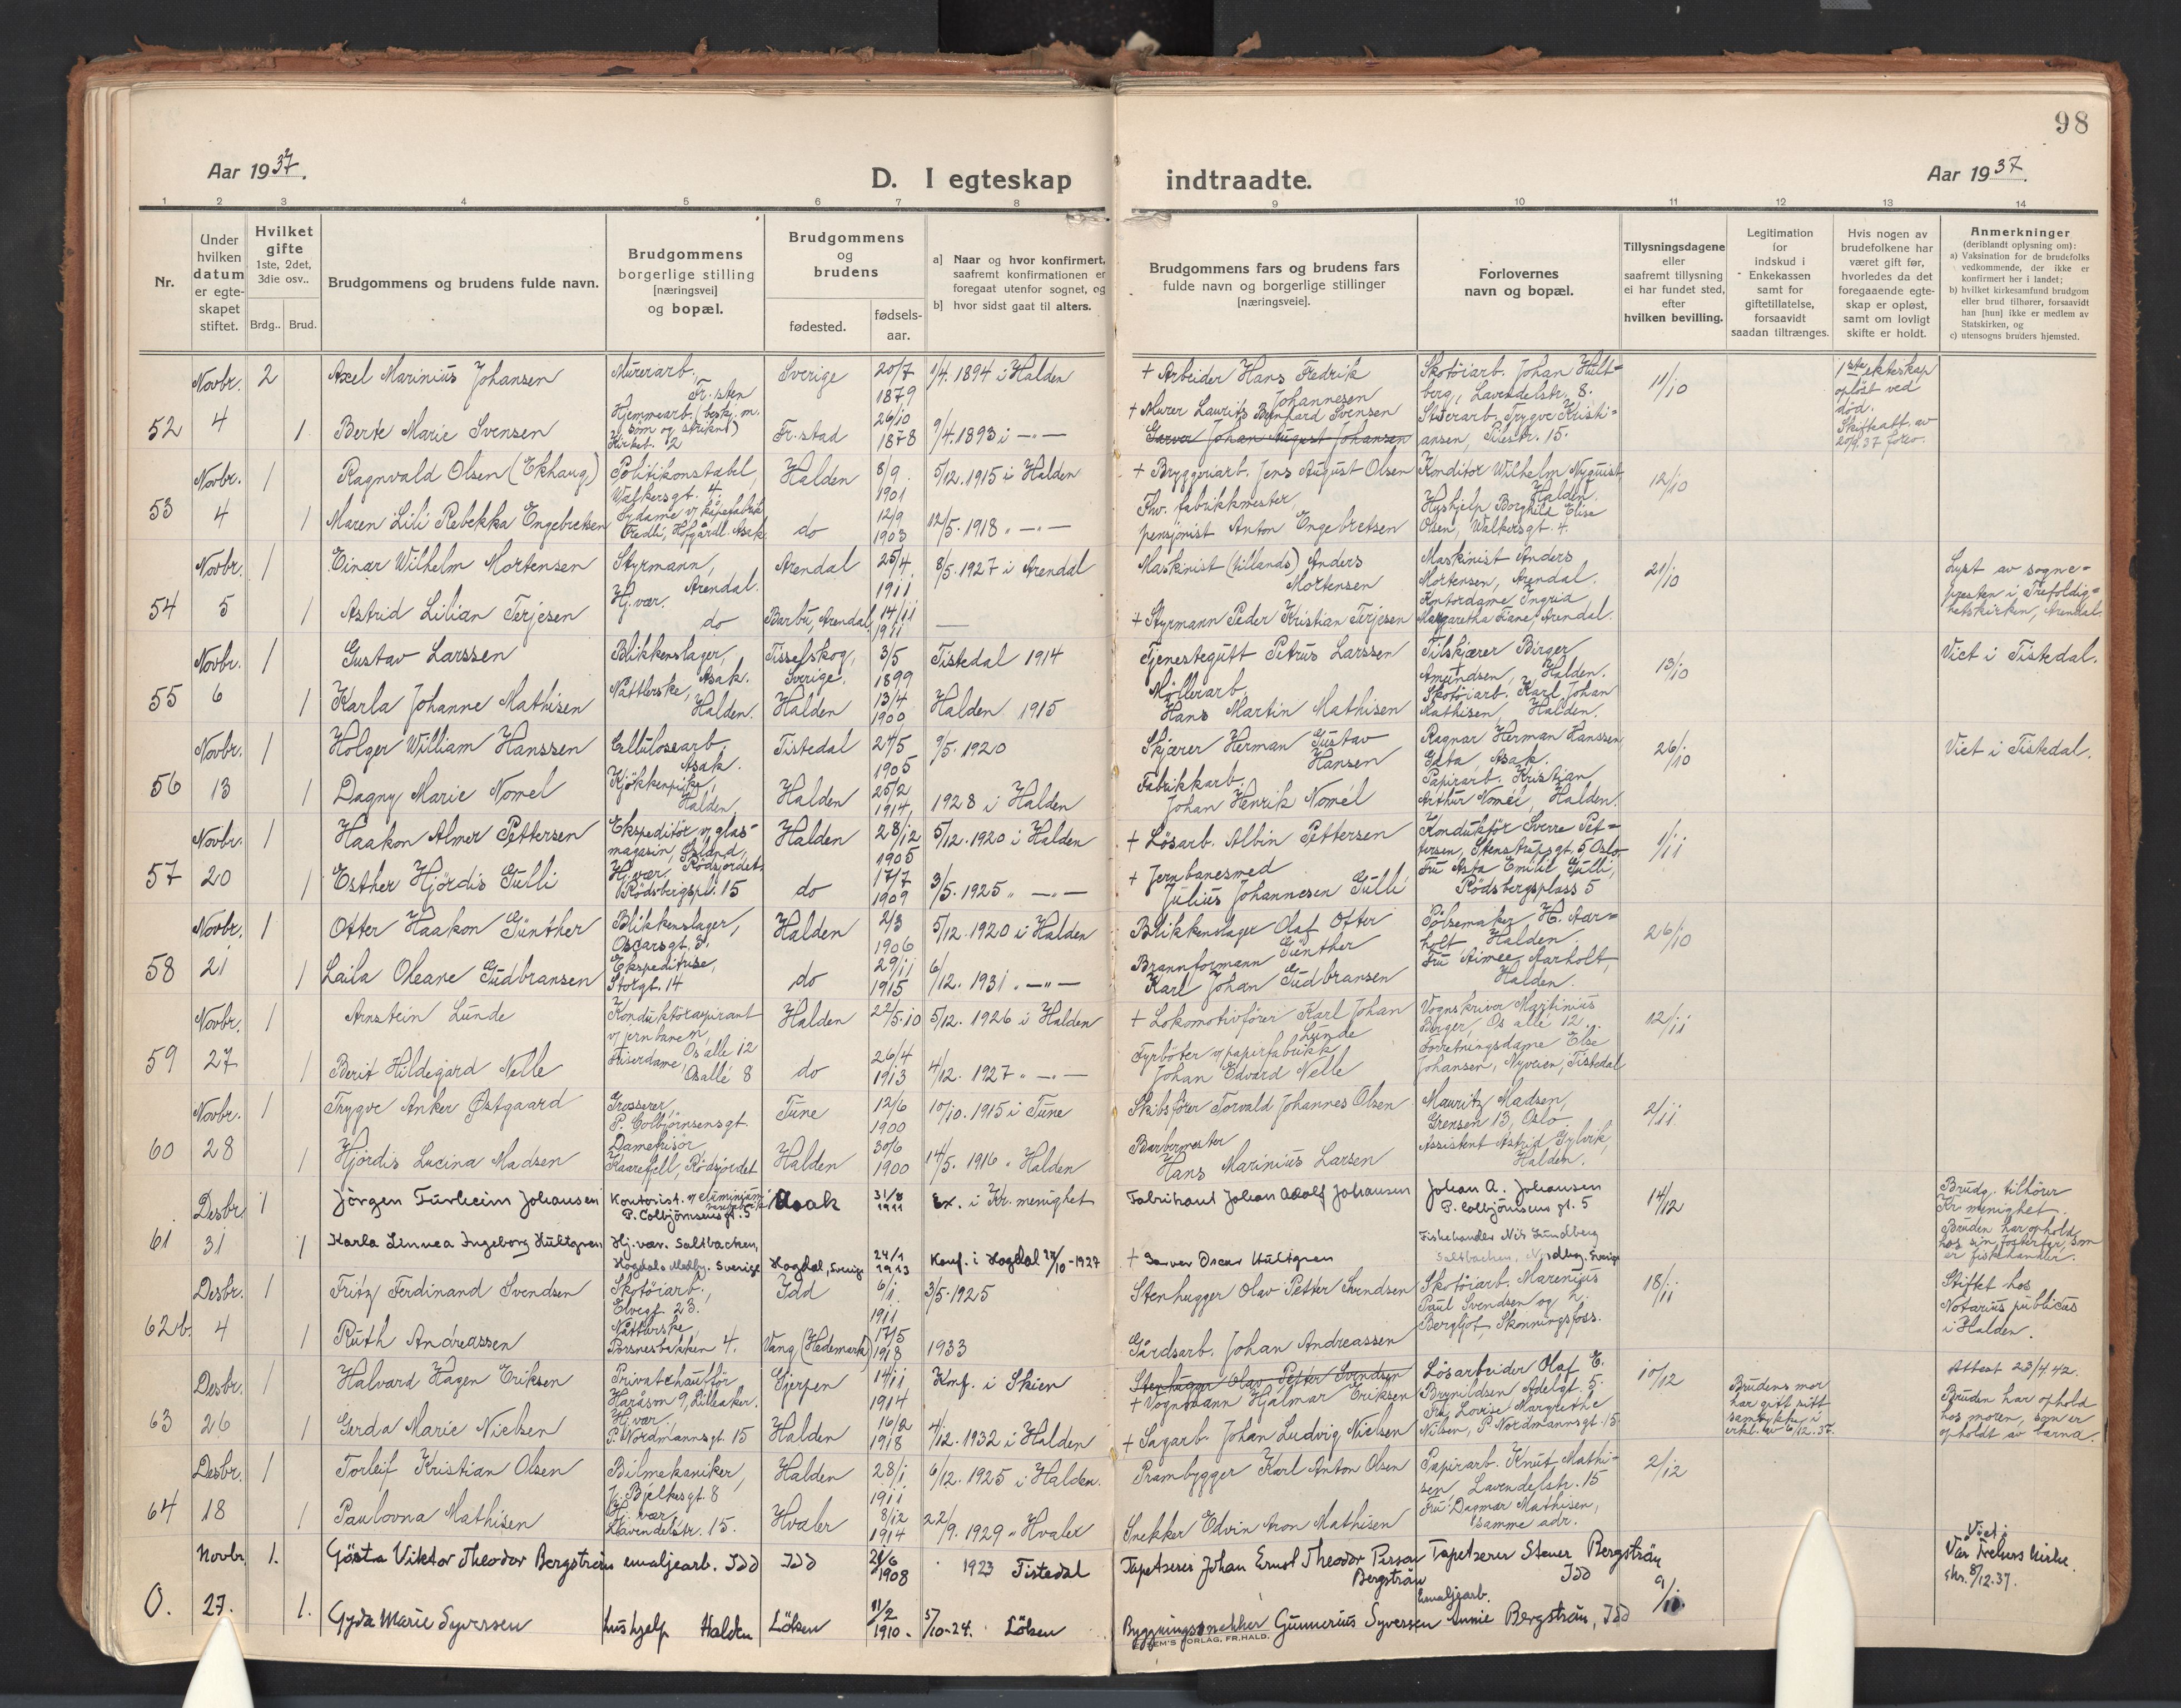 98
Aar 1937.
D. I egteskap indtraadte.
Aar 1937.
1 2 3 4 5 6 7 8 9 10 11 12 13 14
Nr.
Under hvilken datum er egteskapet stiftet.
Hvilket gifte 1ste, 2det, 3die osv..
Brdg.. Brud.
Brudgommens og brudens fulde navn.
Brudgommens borgerlige stilling [næringsvei] og bopæl.
Brudgommens og brudens
fødested.
fødsels-aar.
a] Naar og hvor konfirmert, saafremt konfirmationen er foregaat utenfor sognet, og
b] hvor sidst gaat til alters.
Brudgommens fars og brudens fars fulde navn og borgerlige stillinger [næringsveie].
Forlovernes navn og bopæl.
Tillysningsdagene eller saafremt tillysning ei har fundet sted, efter hvilken bevilling.
Legitimation for indskud i Enkekassen samt for giftetillatelse, forsaavidt saadan tiltrænges.
Hvis nogen av brudefolkene har været gift før, hvorledes da det foregaaende egteskap er opløst, samt om lovligt skifte er holdt.
Anmerkninger (deriblandt oplysning om):
a) Vaksination for de brudefolks vedkommende, der ikke er konfirmert her i landet;
b) hvilket kirkesamfund brudgom eller brud tilhører, forsaavidt han [hun] ikke er medlem av Statskirken, og
c) utensogns bruders hjemsted.
Novbr. 2 Axel Marinius Johansen Murerarb., Fr.sten Sverige 20/7 1879 1/4. 1894 i Halden + Arbeider Hans Fredrik Johannesen Skotöiarb. Johan Hultberg, Lavendelstr. 8. 11/10 1ste ekteskap oplöst ved död. Skifteatt. av
52 4 1 Berte Marie Svensen Hjemmearb. (besk. m. söm og strikn.) 2 Fr.stad 26/10 1878 9/4.1893 i —"— + Murer Laurits Bernhard Svensen Garver Johan August Johansen ansen, Pilestr. 15.
Novbr. 1 Ragnvald Olsen (Ekhaug) Politikonstabel, Walkersgt. 4 Halden 8/9 1901 5/12. 1915 i Halden + Bryggeriarb. Jens August Olsen Konditor Wilhelm Nyquist Halden. 12/10
53 4 1 Maren Lili Rebekka Engebretsen Sydame v/ kåpefabrik Fredli, Hofgårdl. Asak do 12/9 1903 12/5. 1918 " —"— Fhv. fabrikkmester, pensjonist Anton Engebretsen Hushjelp Borghild Elise Olsen, Walkersgt. 4.
Novbr. 1 Einar Wilhelm Mortensen Styrmann, Arendal. Arendal 25/4 1911 8/5. 1927 i Arendal Maskinist (tillands) Anders Mortensen Maskinist Anders Mortensen, Arendal. 21/10 Lyst av sognepresten i Trefoldighetskirken, Arendal.
54 5 1 Astrid Lilian Terjesen Hj.vær. do Barbu, Arendal 14/11 1911 — + Styrmann Peder Kristian Terjesen Kontordame Ingrid Margaretha Arendal.
Novbr. 1 Gustav Larssen Blikkenslager, Asak. Tisselskog, Sverige. 3/5 1899 Tistedal 1914 Tjenestegutt Petrus Larssen Tilskjærer Birger Amundsen, Halden. 13/10 Viet i Tistedal.
55 6 1 Karla Johanne Mathisen Nåtlerske, Halden. Halden 13/4 1900 Halden 1915 Möllerarb. Hans Martin Mathisen Skotöiarb. Karl Johan Mathisen, Halden.
Novbr. 1 Holger William Hanssen Cellulosearb. Asak. Tistedal 24/5 1905 9/5. 1920 Skjærer Herman Gustav Hansen Ragnar Herman Hanssen Asak. 26/10 Viet i Tistedal.
56 13 1 Dagny Marie Nomel Kjökkenpike, Halden Halden 25/2 1914 1928 i Halden Fabrikkarb. Johan Henrik Nomél Papirarb. Kristian Arthur Nomél, Halden.
Novbr. 1 Haakon Almer Pettersen Ekspeditör v/ glasmagasin, Rödsjordet Halden 28/12 1905 5/12. 1920 i Halden + Lösarb. Albin Pettersen Konduktör Sverre Pettersen, Stenstrupsgt. 5 Oslo 1/11
57 20 1 Esther Hjördis Gulli Hj.vær Rödsbergspl. 15 do 17/7 1909 3/5. 1925 " —"— + Jernbanesmed Julius Johannesen Gulli Fru Asta Emilie Gulli, Rödsbergsplass 5
Novbr. 1 Otter Haakon Günther Blikkenslager, Oscarsgt. 3. Halden 2/3 1906 5/12. 1920 i Halden Blikkenslager Olaf Otter Günther Pölsemaker H. Aarholt Halden 26/10
58 21 1 Laila Oleane Gudbransen Ekspeditrise, Storgt. 14 do 29/11 1915 6/12. 1931 " —"— Brannformann Karl Johan Gudbransen Fru Aimee Aarholt, Halden.
Novbr. 1 Arnstein Lunde Konduktöraspirant v/ jernbanen, Os allé 12 Halden 22/5.10 5/12. 1926 i Halden + Lokomotivförer Karl Johan Lunde Vognskriver Martinius Berger, Os allé 12. 12/11
59 27 1 Berit Hildegard Nelle Friserdame, Osallé 8 do 26/4 1913 4/12. 1927 " —"— Fyrböter v/ papirfabrikk Johan Edvard Nelle Forretningsdame Else Johansen, Nyveien, Tistedal
Novbr. 1 Trygve Anker Østgaard Grosserer, P. Colbjörnsensgt. Tune 12/6 1900 10/10. 1915 i Tune Skibsförer Torvald Johannes Olsen Mauritz Madsen, Grensen 13, Oslo 2/11
60 28 1 Hjördis Lucina Madsen Damefrisör Kaarefjell, Rödsjordet Halden 30/6 1900 14/5. 1916 " Halden Barbermester Hans Marinius Larsen Assistent Astrid Gylvik, Halden.
Desbr. 1 Jörgen Turheim Johansen Kontorist v/ aluminium P. Colbjörnsensgt. 5 Asak 31/8 1911 Ex. i Kr. menighet Fabrikant Johan Adolf Johansen Johan A. Johansen P. Colbjörnsens gt. 5 14/12 Brudg. tilhörer Kr. menighet.
61 31 1 Karla Linnea Ingeborg Hultgren Hj. vær. Saltbacken, Sverige Hogdal, Sverige 24/1 1913 Konf. i Hogdal 27/10-1927 + Garver Oscar Hultgren Fiskehandler Nils Lundberg Saltbacken, Sverige Bruden har ophold hos sin fosterfar, som er fiskehandler.
Desbr. 1 Fritz Ferdinand Svendsen Skotöiarb., Elvegt. 23. Idd 6/1 1911 3/5.1925 Stenhugger Olav Petter Svendsen Skotöiarb. Marenius Paul Svendsen og h. Bergljot, Skonningsfoss. 18/11 Stiftet hos Notarius publicus i Halden.
62b. 4 1 Ruth Andreassen Nåtlerske Porsnesbakken 4. Vang (Hedemark) 17/5 1918 1933 Gårdsarb. Johan Andreassen
Desbr. 1 Halvard Hagen Eriksen Privatchaufför Haråsen 9, Lilleaker. Gjerpen 14/11 1914 Konf. i Skien Stenhugger Olav Petter Svendsen + Vognmann Hjalmar Eriksen Lösarbeider Olaf E. Brynildsen Adelgt. 5. 10/12 Brudens mor har gitt sitt samtykke i erkl. av 6/12.37. Attest 23/4.42.
63 26 1 Gerda Marie Nielsen Hj.vær. P. Nordmannsgt 15 Halden 16/2 1918 4/12. 1932 i Halden + Sagarb. Johan Ludvig Nielsen Frk. Lovise Margrethe Nilsen, P. Nordmannsgt. 15 Bruden har ophold hos moren, som er opholdt av barna.
Desbr. 1 Torleif Kristian Olsen Bilmekaniker, J. Bjelkesgt. 8 Halden 28/1 1911 6/12. 1925 i Halden. Prambygger Karl Anton Olsen Papirarb. Knut Mathisen, Lavendelstr. 15 2/12
64 18 1 Paulovna Mathisen Hj. vær, Lavendelstr. 15. Hvaler 8/12 1914 22/9. 1929 " Hvaler Snekker Edvin Aron Mathisen Fru Dagmar Mathisen, samme adr.
Novbr. 1. Gösta Viktor Theodor Bergström emaljearb. Idd Idd 28/6 1908 1923 Tistedal Tapetserer Johan Ernst Theodor Person Bergström Tapetserer Stener Bergström Idd 9/11 Viet i Vår Frelsers kirke. 8/12.37.
O. 27. 1. Gyda Marie Syversen hushjelp Halden Lölsen 11/2 1910. 5/10-24. Lölsen Bygningssnekker Gunnerius Syversen Emaljearb. Annie Bergström, Idd
FORLAG, FR.HALD.